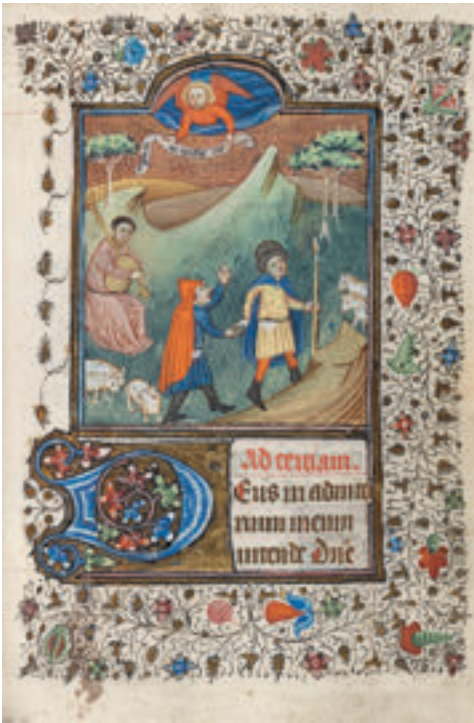 Ad terciam.
Eus in adiuto
rium meum
intende Dne